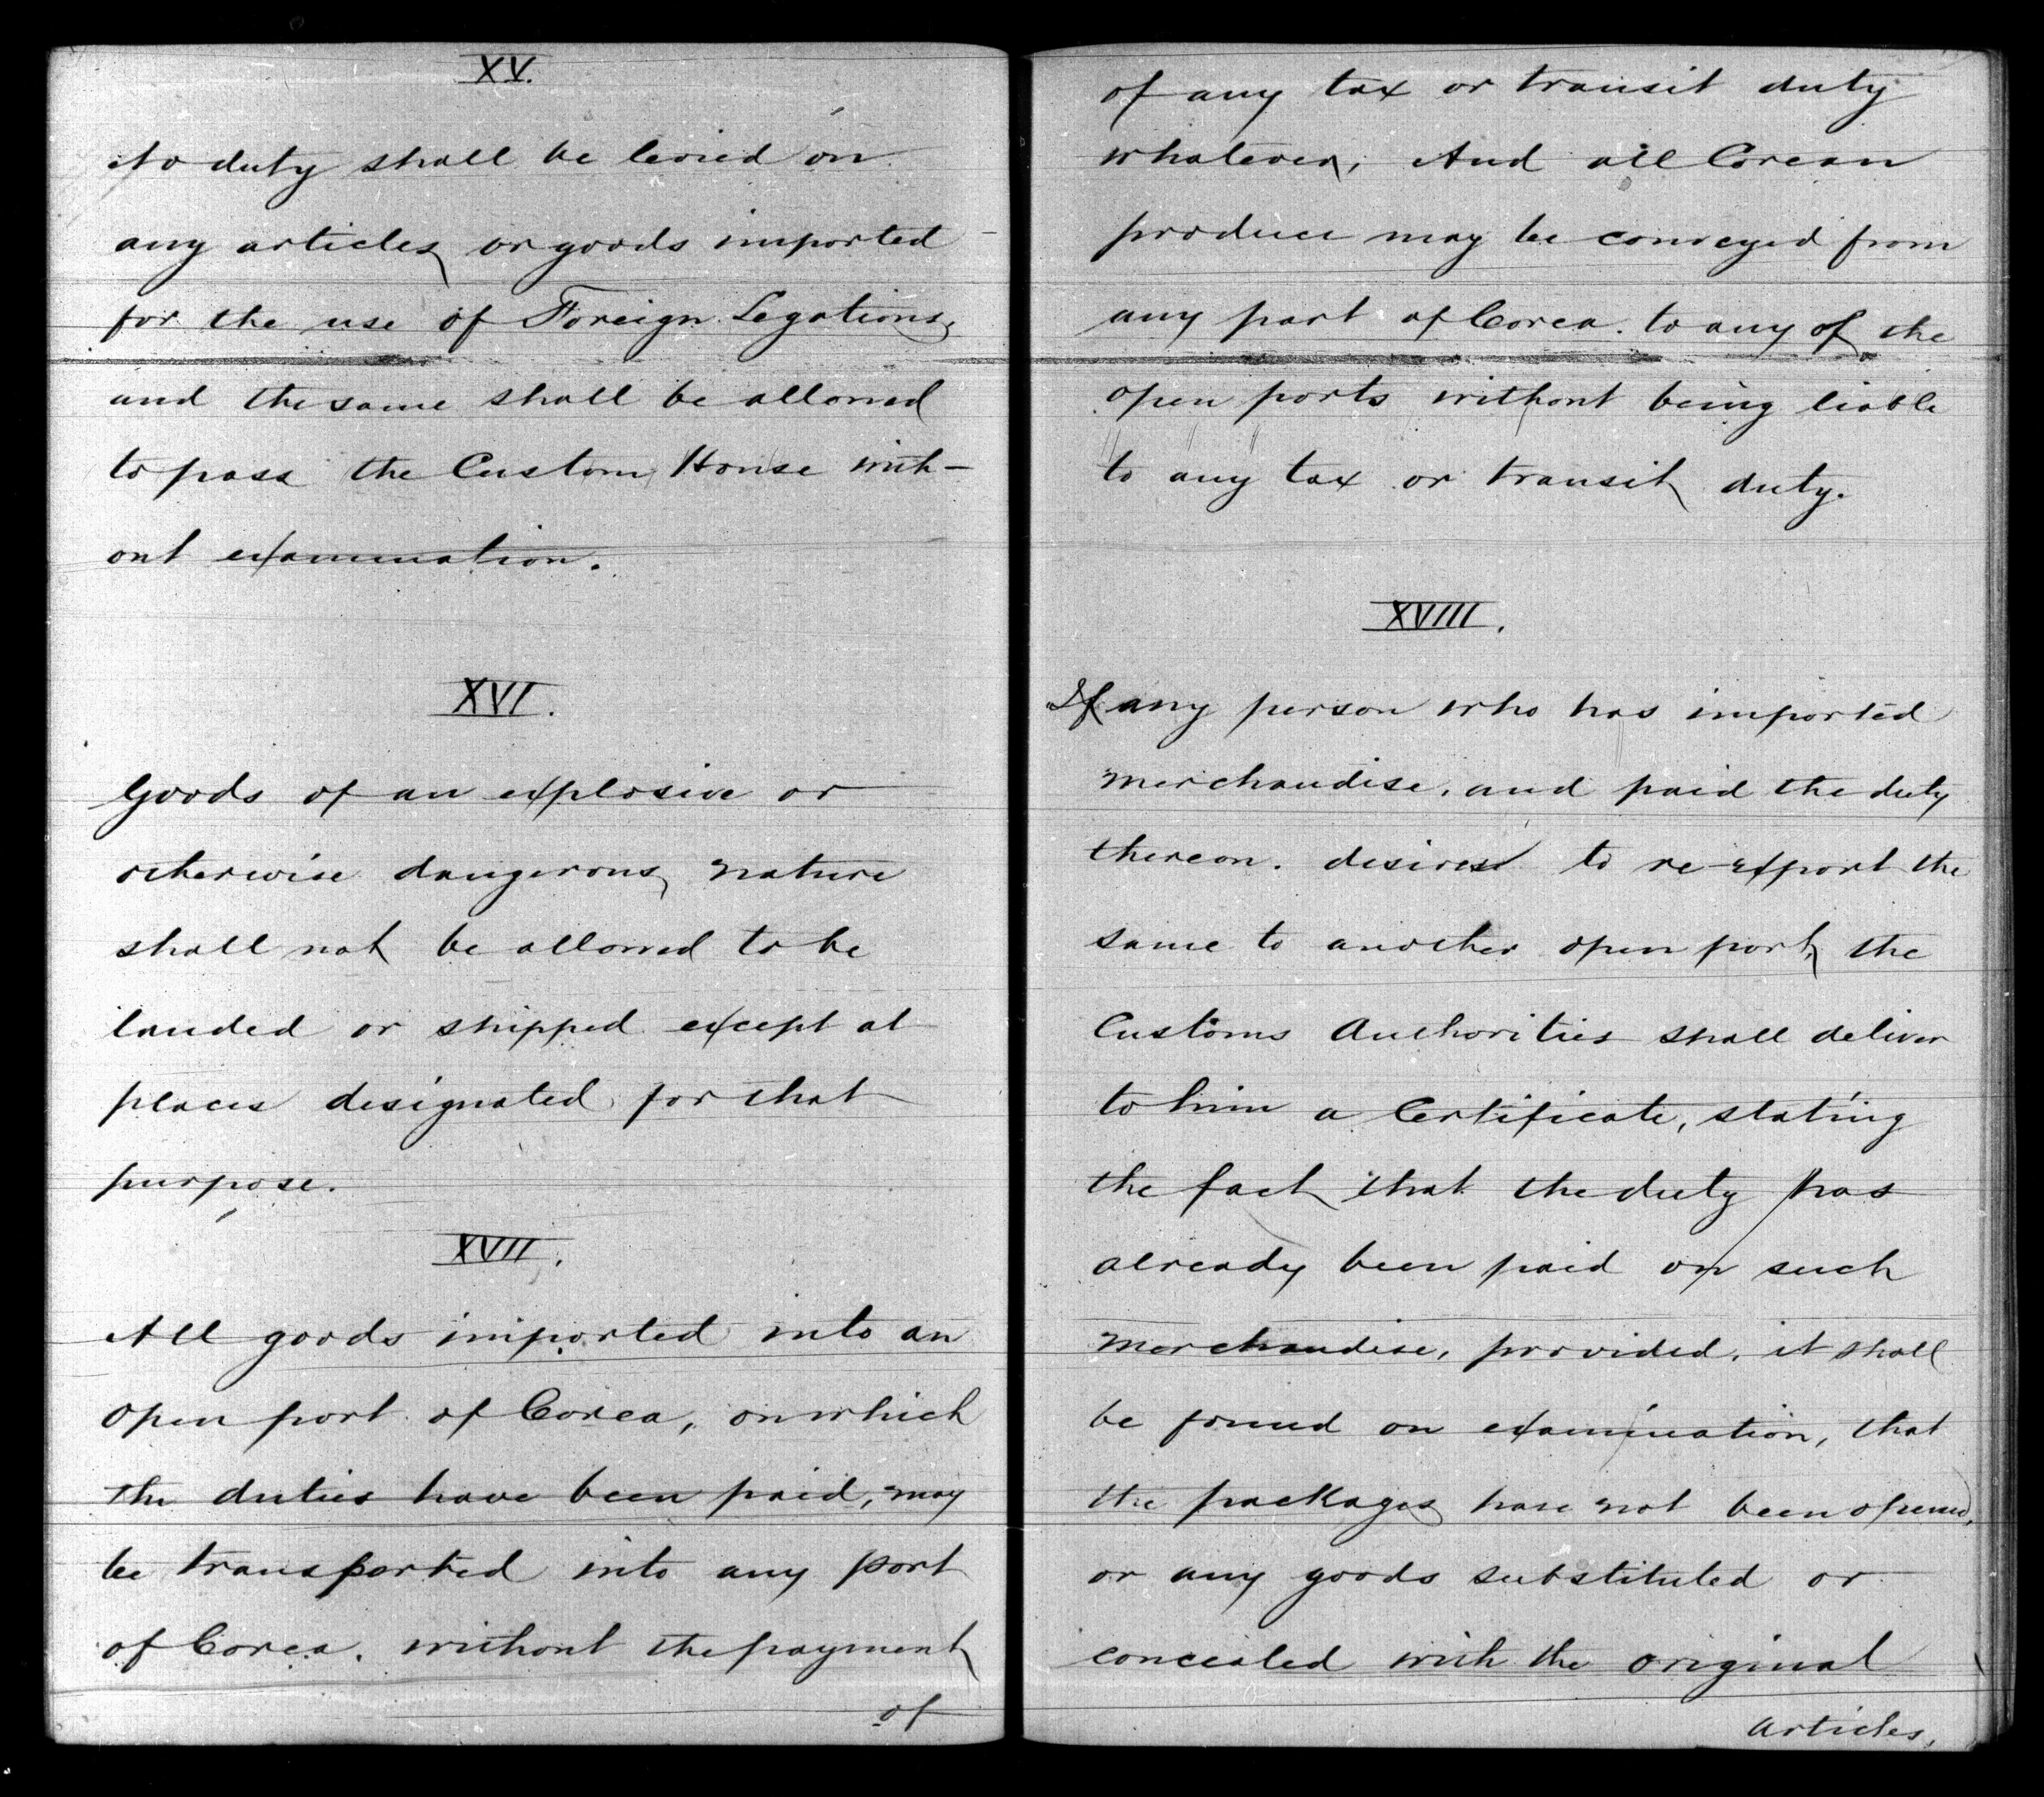 XV.
No duty shall be levied on
any articles or goods imported
for the use of Foreign Legations,
and the same shall be allowed
to pass the Custom House with-
out examination.
XVI.
Goods of an explosive or
otherwise dangerous nature
shall not be allowed to be
landed or shipped except at
places designated for that
purpose.
XVII.
All goods imported into an
open port of Corea, on which
the duties have been paid, may
be transported into any port
of Corea. without the payment
of
of any tax or transit duty
whatever, And all Corean
produce may be conveyed from
any part of Corea. to any of the
open ports without being liable
to any tax or transit duty.
XVIII.
If any person who has imported
merchandise, and paid the duty
thereon. desires to re-export the
same to another open port, the
Customs Authorities shall deliver
to him a Certificate, stating
the fact that the duty has
already been paid on such
Merchandise, provided, it shall
be found on examination, that
the packages have not been opened,
or any goods substituted or
concealed with the original
Articles,